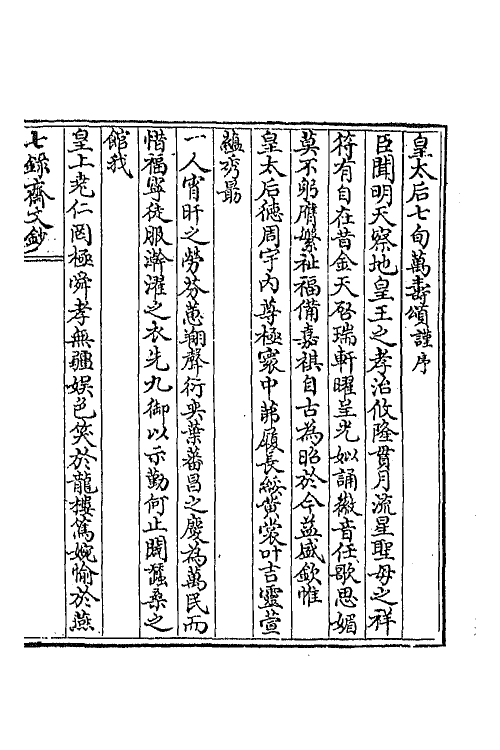 皇太后七旬萬壽頌謹序
臣聞明天察地皇王之孝治攸隆貫月流星聖母之祥
符有自在昔金天啓瑞軒曜呈光姒誦徽音任歌思媚
莫不躬膺繁祉福備嘉祺自古為昭於今益盛欽惟
皇太后德周宇內尊極寰中茀履長綏黄裳叶吉靈萱
蘊秀最
一人宵旰之勞芬蕙翔聲衍奕葉蕃昌之慶為萬民而
惜福寧徒服澣濯之衣先九御以示勤何止闢蠶桑之
館我
皇上堯仁罔極舜孝無疆娱色笑於龍樓篤婉愉於燕
七錄齋文鈔